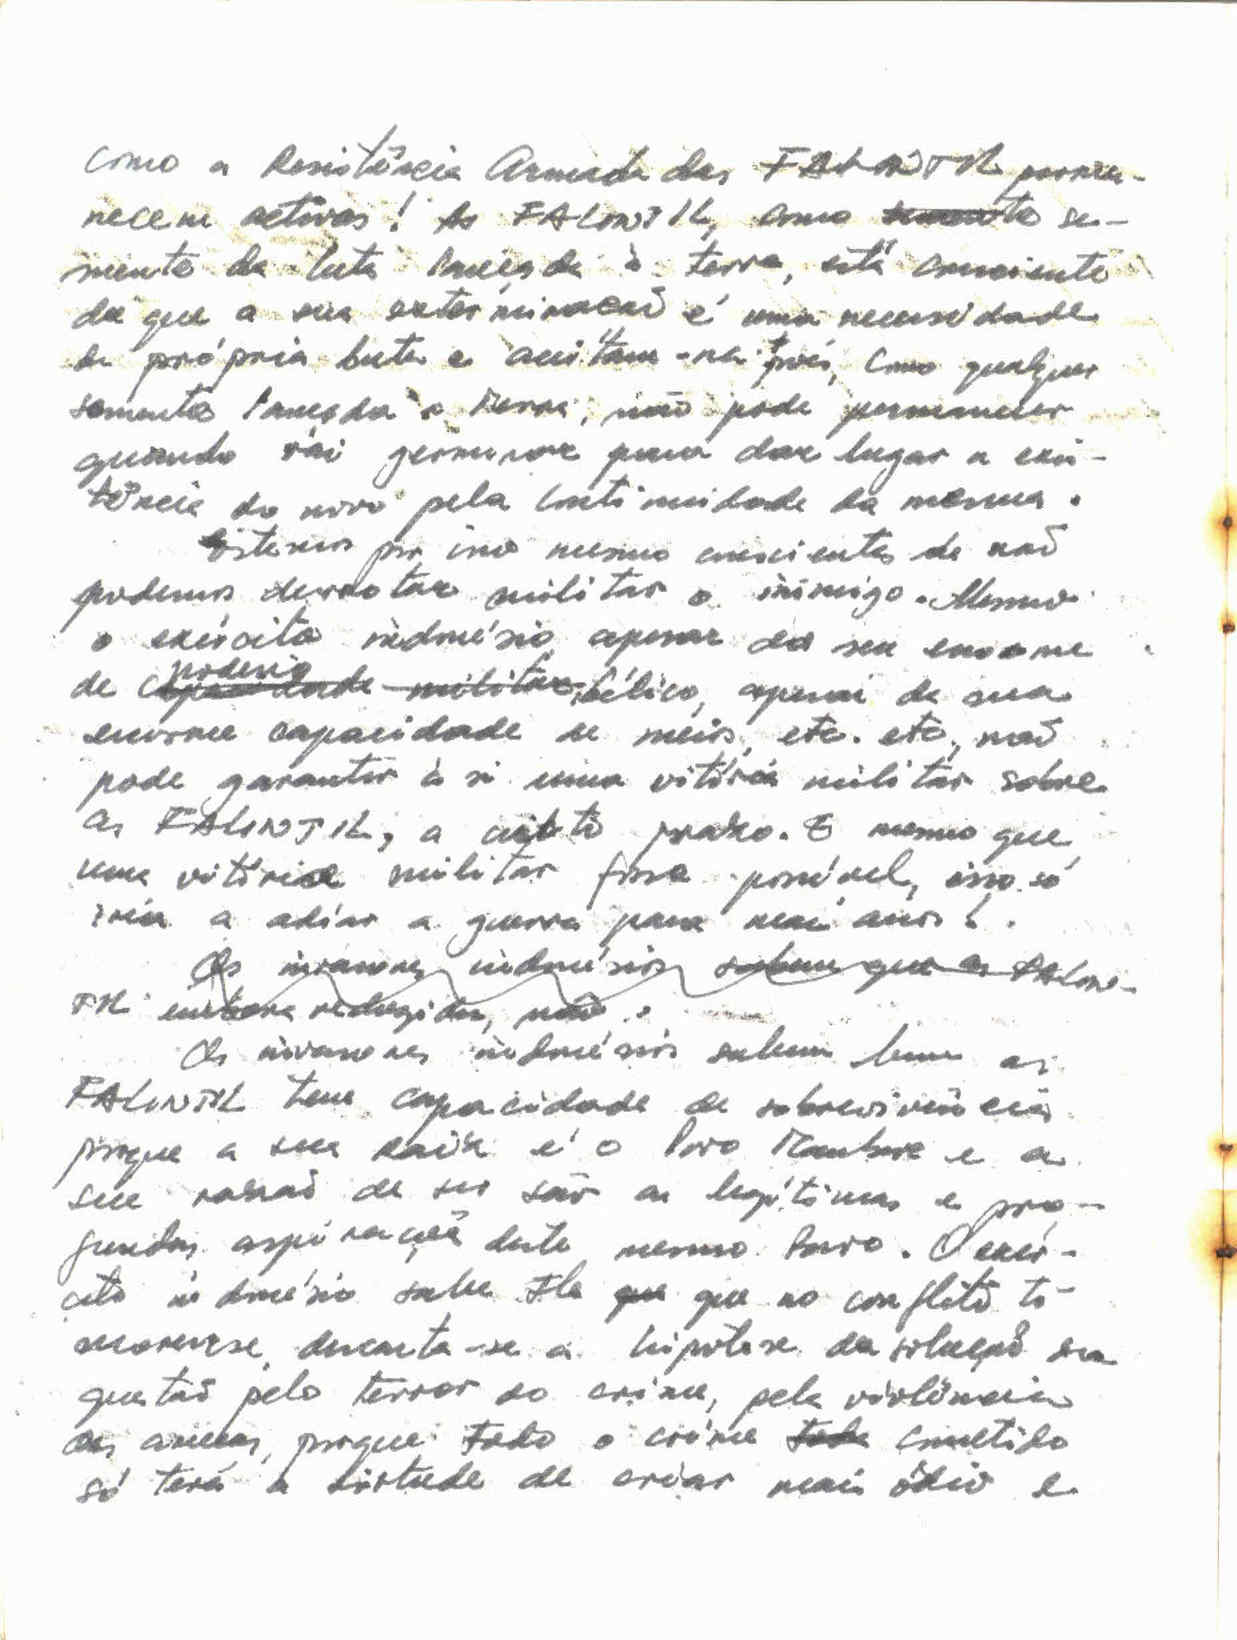 como a Resistência Armada das FALINTIL perma-
necem activas! As FALINTIL, como semente se-
mente da luta lançada à terra, está consciente
de que a sua exterminação é uma necessidade
da própria luta e aceitam-na pois, como qualquer
semente lançada à terra, não pode permanecer
quando vai germinar para dar lugar a exis-
tência do novo pela continuidade da mesma.
Estamos por isso mesmo conscientes de não
podemos derrotar militar o inimigo. Mesmo
o exército indonésio apesar do seu enorme
de capacidade militar poderio bélico, apesar de sua
enorme capacidade de meios, etc. etc, não
pode garantir à si uma vitória militar sobre
as FALINTIL, a curto prazo. E mesmo que
uma vitória militar fosse possível, isso só
iria a adiar a guerra para mais anos!.
Os invasores indonésios sabem que as FALIN-
TIL embora reduzidas, não.
Os invasores indonésios sabem bem as
FALINTIL tem capacidade de sobrevivência
porque a sua raiz é o Povo Maubere e a
sua razão de ser são as legítimas e pro-
fundas aspirações deste mesmo Povo. O exér-
cito indonésio sabe que que no conflito ti-
morense, descarta-se a hipótese da solução da
questão pelo terror do crime, pela violência
das armas, porque todo o crime todo cometido
só terá a virtude de criar mais ódio e